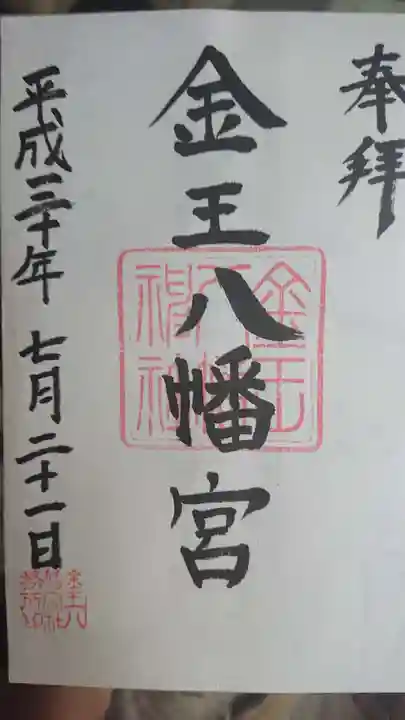 奉拝
金王八幡宮
平成三十年七月二十一日
金王
神社